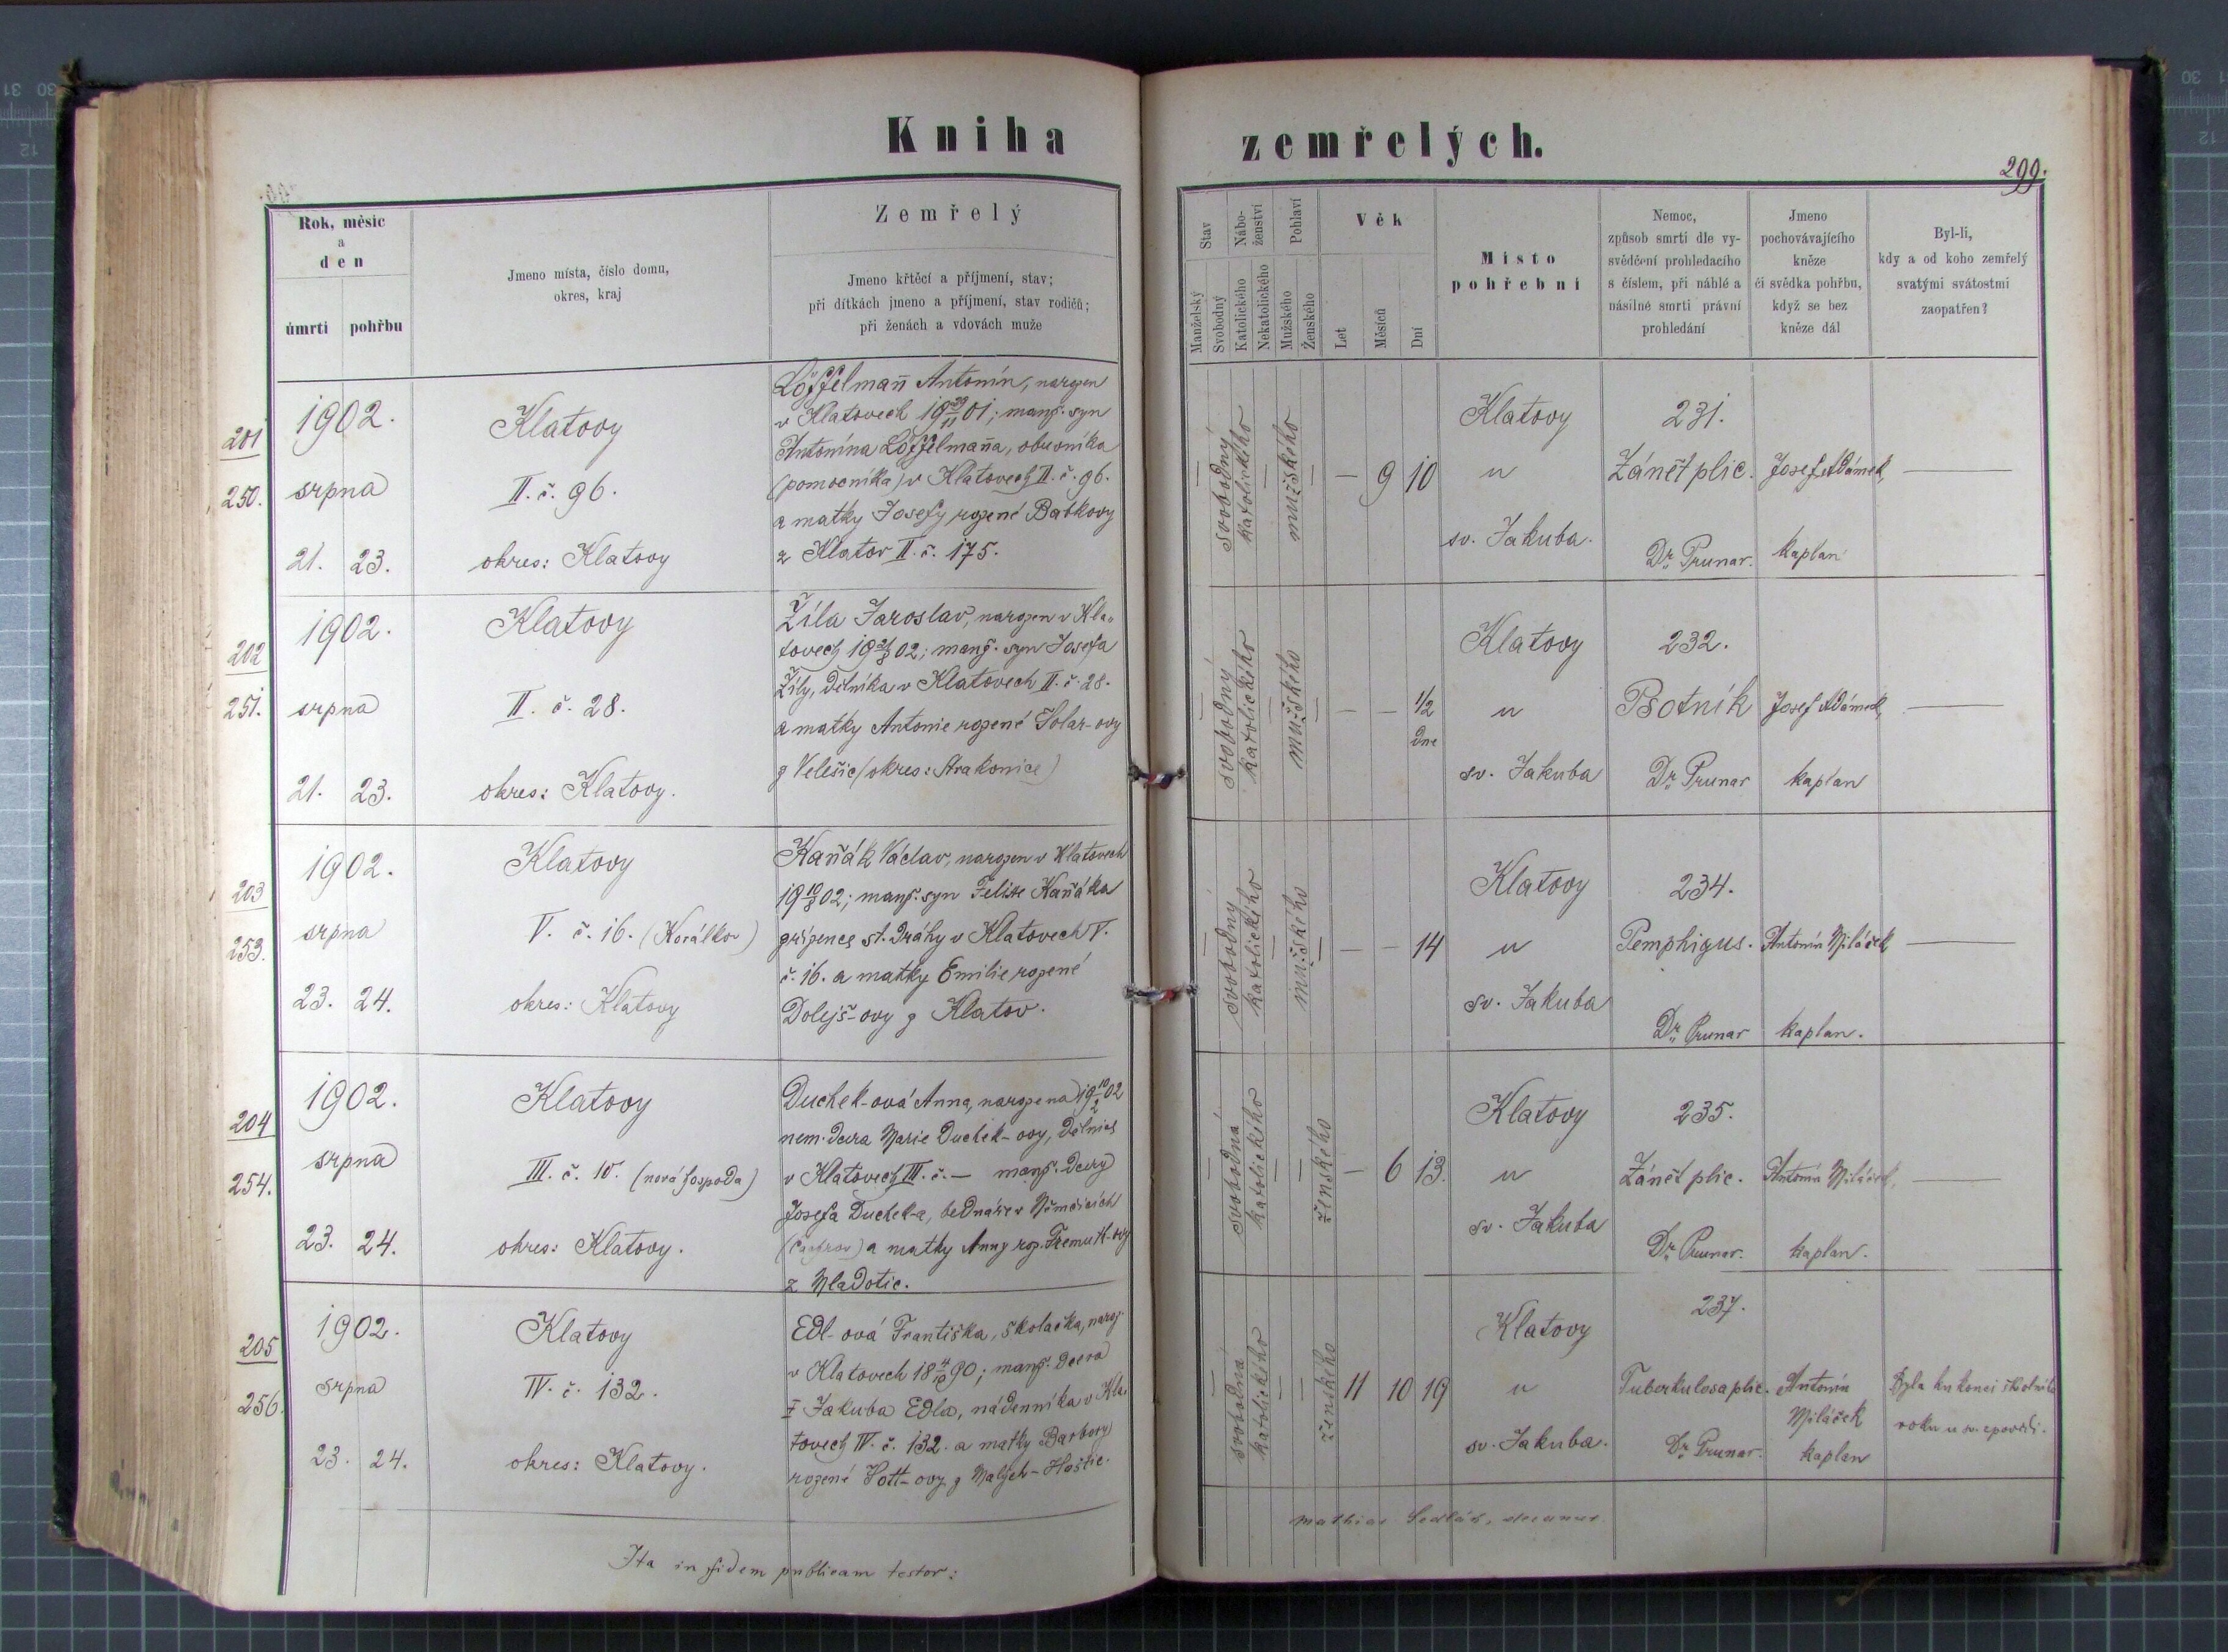 Kniha zemřelých.
299.
Rok, měsíc
a
den
úmrtí pohřbu
Jmeno místa, číslo domu,
okres, kraj
Zemřelý
Jmeno křtěcí a příjmení, stav;
při dítkách jmeno a příjmení, stav rodičů;
při ženách a vdovách muže
Stav
Manželský
Svobodný
Nábo-
ženství
Katolického
Nekatolického
Pohlaví
Mužského
Ženského
Věk
Let
Měsíců
Dní
Místo
pohřební
Nemoc,
způsob smrti dle vy-
svědčení prohledacího
s číslem, při náhlé a
násilné smrti právní
prohledání
Jmeno
pochovávajícího
kněze
či svědka pohřbu,
když se bez
kněze dál
Byl-li,
kdy a od koho zemřelý
svatými svátostmi
zaopatřen?
201
250.
1902.
srpna
21. 23.
Klatovy
II. č. 96.
okres: Klatovy
Löffelmañ Antonín, narozen
v Klatovech 19 29/11 01; manž. syn
Antonína Löffelmaña, obuvníka
(pomocníka) v Klatovech II. č. 96.
a matky Josefy rozené Batkovy
z Klatov II. č. 175.
— svobodný
katolického —
mužského —
— 9 10
Klatovy
u
sv. Jakuba.
231.
Zánět plic.
Dr. Prunar.
Josef Adámek,
kaplan
—
202
251.
1902.
srpna
21. 23.
Klatovy
II. č. 28.
okres: Klatovy.
Žíla Jaroslav, narozen v Kla-
tovech 19 21/8 02; manž. syn Josefa
Žíly, dělníka v Klatovech II. č. 28.
a matky Antonie rozené Solar-ovy
z Velešic (okres: Strakonice)
— svobodný
katolického —
mužského —
— — 1/2
dne
Klatovy
u
sv. Jakuba
232.
Psotník
Dr. Prunar
Josef Adámek,
kaplan
—
203
253.
1902.
srpna
23. 24.
Klatovy
V. č. 16. (Korálkov)
okres: Klatovy
Kaňák Václav, narozen v Klatovech
19 10/8 02; manž. syn Felixe Kaňáka
zřízence st. dráhy v Klatovech V.
č. 16. a matky Emilie rozené
Dolejš-ovy z Klatov.
— svobodný
katolického —
mužského —
— — 14
Klatovy
u
sv. Jakuba
234.
Pemphigus.
Dr. Prunar
Antonín Miláček
kaplan.
—
204
254.
1902.
srpna
23. 24.
Klatovy
III. č. 10. (nová hospoda)
okres: Klatovy.
Duchek-ová Anna, narozena 19 10/2 02
nem. dcera Marie Duchek-ovy, dělnice
v Klatovech III. č. — manž. dcery
Josefa Duchek-a, bednáře v Němčicích
a matky Anny roz.
z Mladotic.
— svobodná
katolického —
— ženského
— 6 13.
Klatovy
u
sv. Jakuba
235.
Zánět plic.
Dr. Prunar.
Antonín Miláček,
kaplan.
—
205
256.
1902.
srpna
23. 24.
Klatovy
IV. č. 132.
okres: Klatovy.
Edl-ová Františka, školačka, naroz.
v Klatovech 18 4/10 90; manž. dcera
† Jakuba Edla, nádenníka v Kla-
tovech IV. č. 132. a matky Barbory
rozené Pott-ovy z Malých-Hoštic.
— svobodná
katolického —
— ženského
11 10 19
Klatovy
u
sv. Jakuba.
237.
Tuberkulosa plic.
Dr. Prunar.
Antonín
Miláček
kaplan
Byla ku konci školního
roku u sv. zpovědi.
Ita in fidem publicam testor:
Mathias Sedlák, decanus.